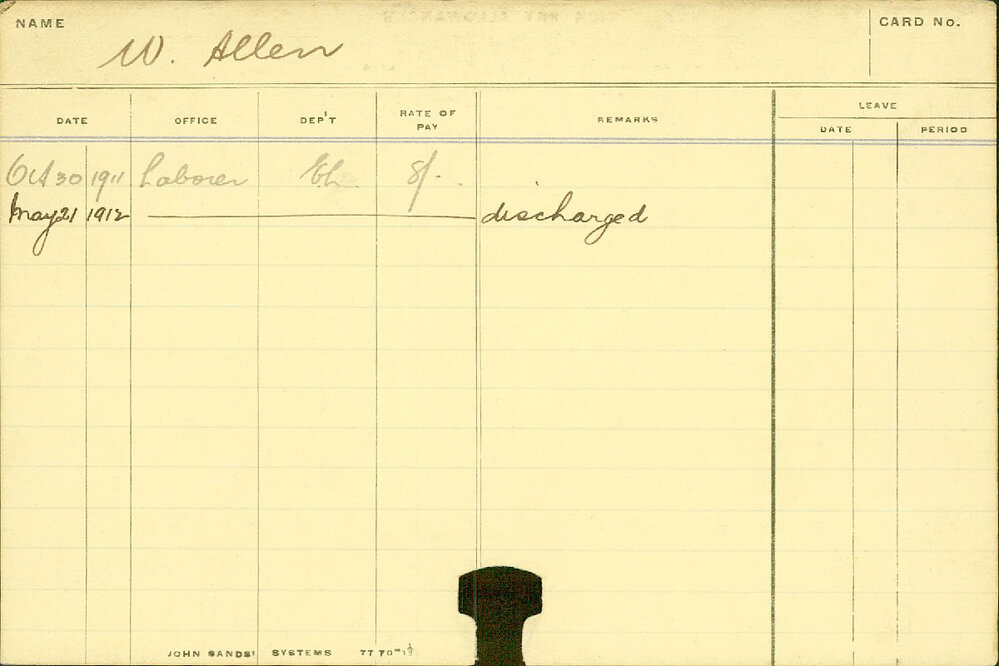 NAME W. Allen CARD No.
DATE OFFICE DEP'T RATE OF PAY REMARKS LEAVE
DATE PERIOD
Oct 30 1911 Laborer 8/-
May 21 1912 discharged
JOHN SANDS' SYSTEMS